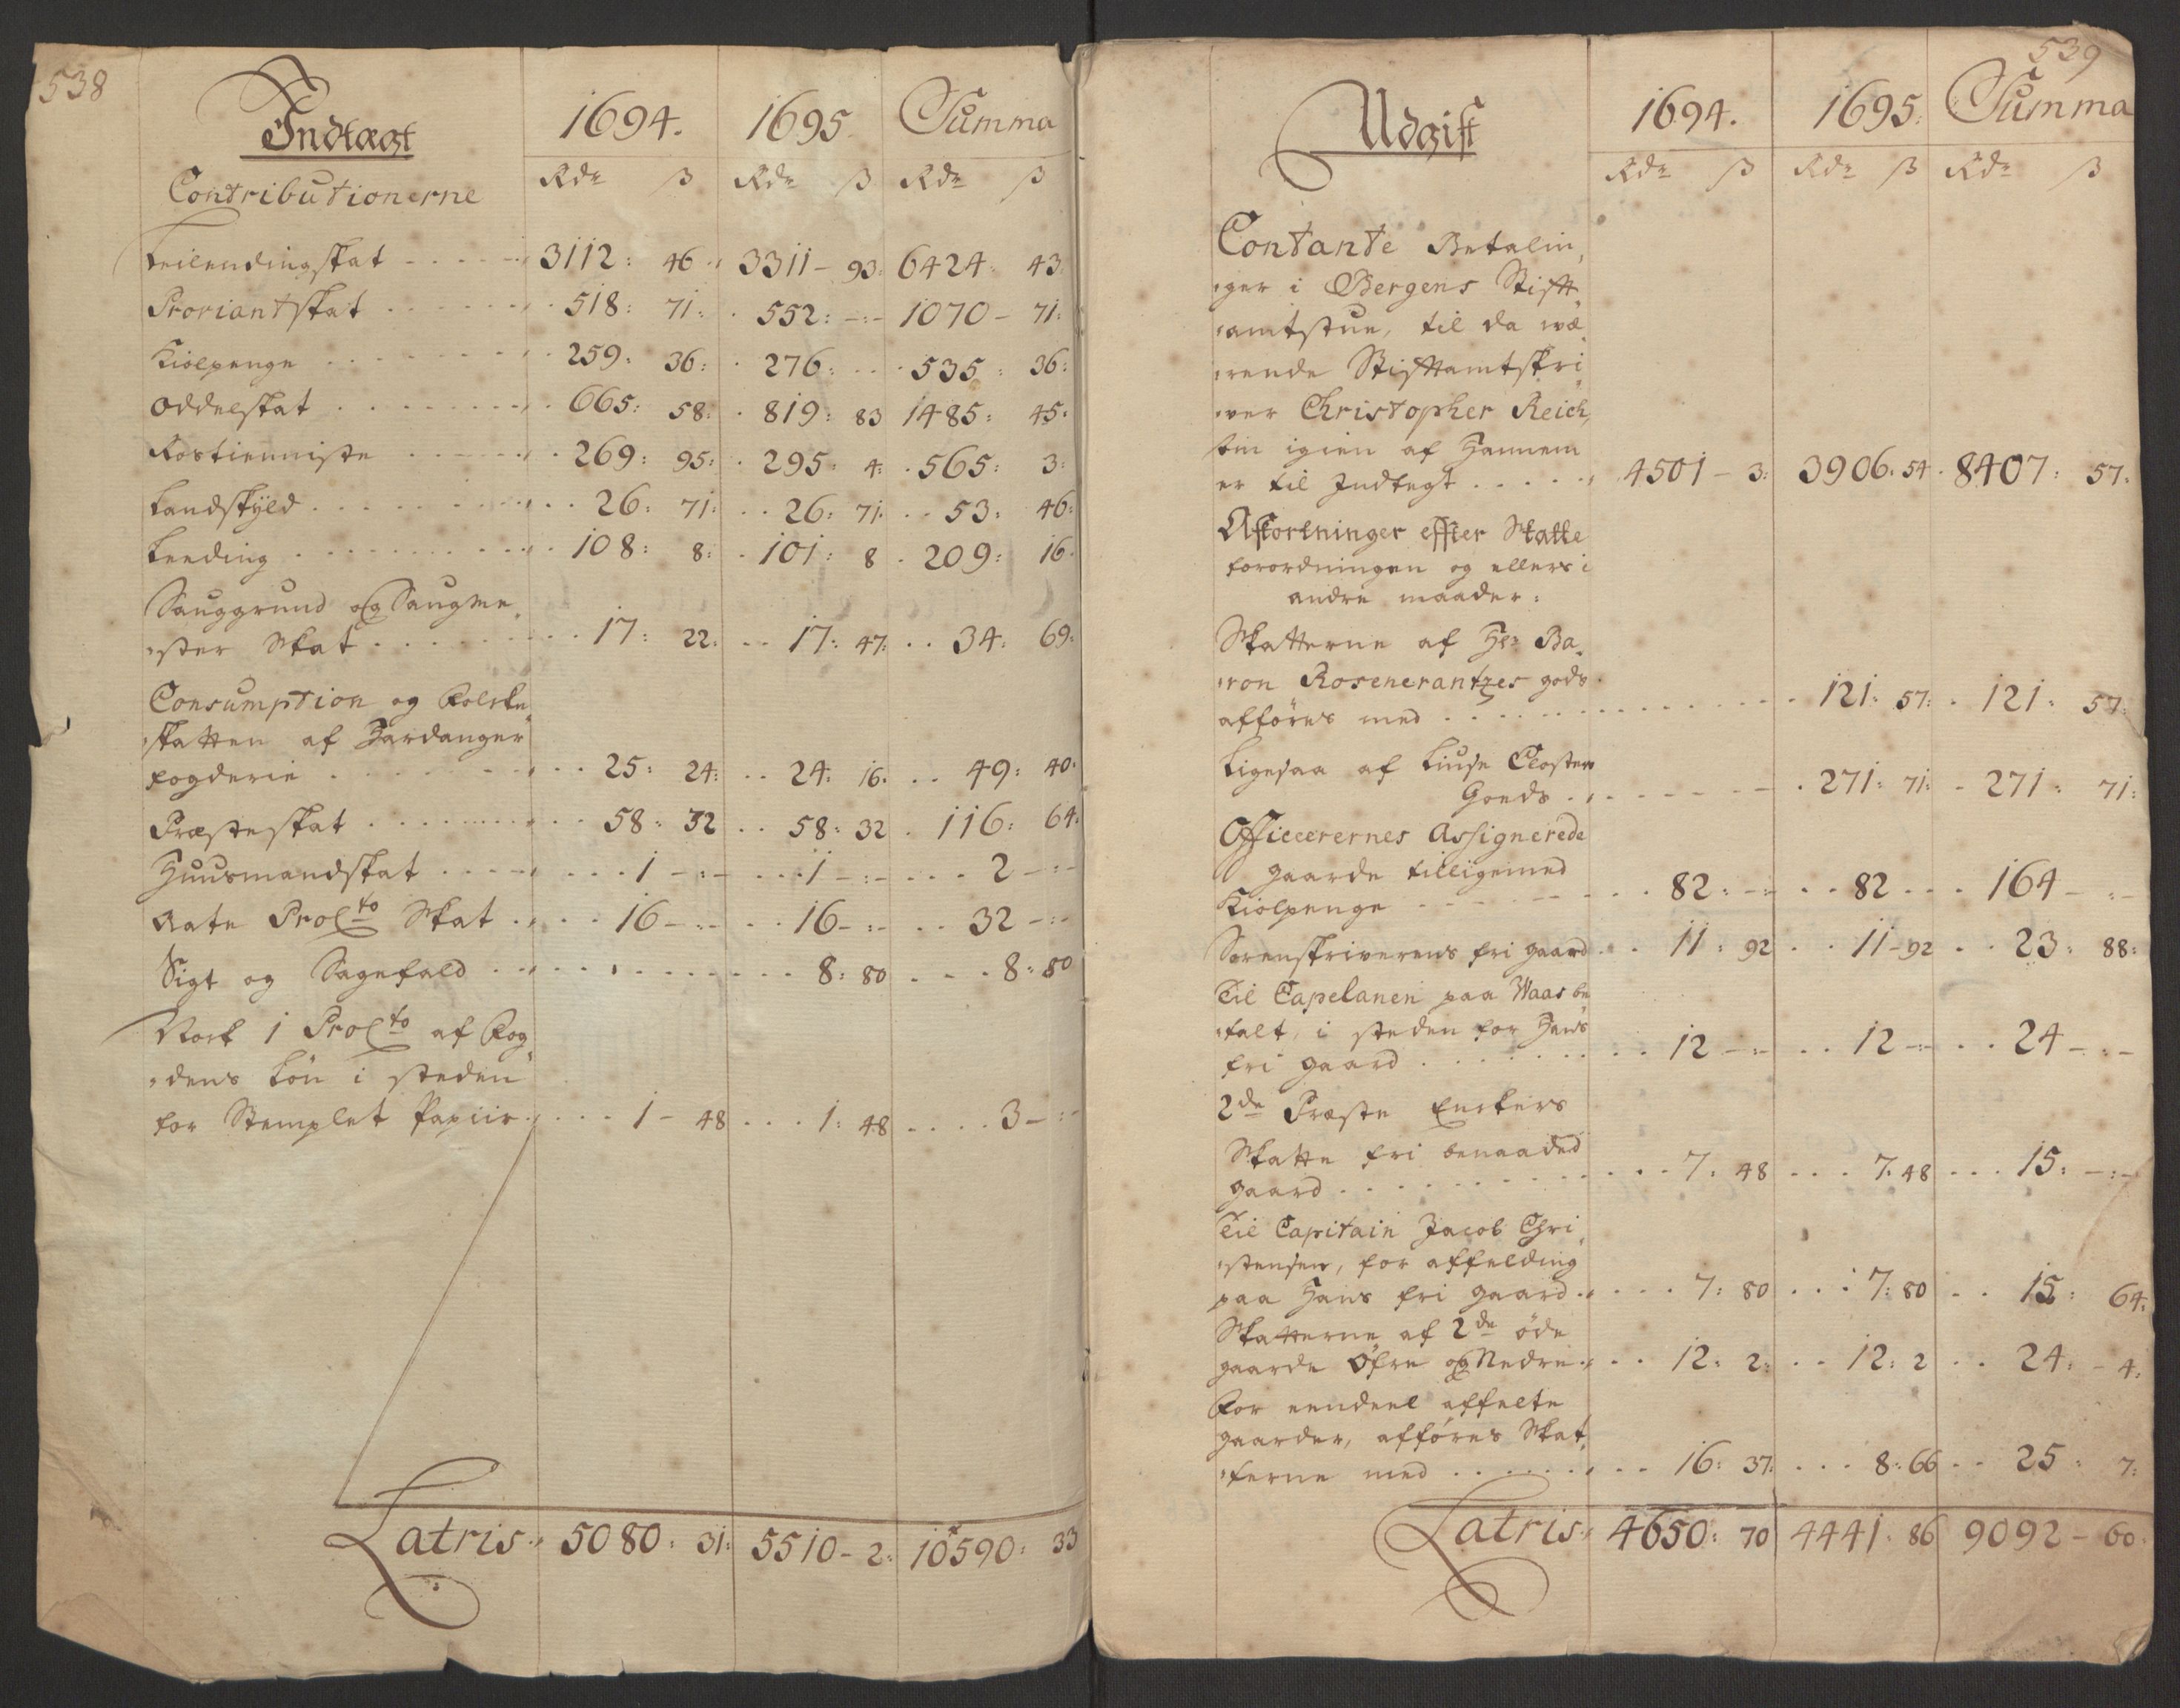 538
Indtægt 1694. 1695. Summa
Contributionerne Rdr ß Rdr ß Rdr ß
Leilendingskat 3112: 46 3311 - 93: 6424: 43:
Proviantskat 518: 71: 552: -:- 1070 - 71:
Kiolpenge 259: 36: 276: 535: 36:
Oddelskat 665: 58: 819: 83 1485: 45:
Rostienniste 269: 95: 295: 4: 565: 3:
Landskyld 26: 71: 26: 71: 53: 46:
Leeding 108: 8: 101: 8 209: 16
Sauggrund og Saugme,
,ster Skat 17: 22: 17: 47: 34: 69:
Consumption og Folcke,
,skatten af Hardanger
fogderie 25: 24: 24: 16. 49: 40:
Præsteskat 58: 32 58: 32 116: 64:
Huusmandskat 1 -:- 1 -:- 2 -:-
Aate Proc̃to Skat 16 -:- 16 -:- 32 -:-
Sigt og Sagefald 8: 80 8: 80
Nock 1 Proc̃to af Fog,
,dens Løn i steden
for Stemplet Papiir 1 - 48 1: 48 3 -:-
Latris 5080: 31: 5510 - 2: 10590: 33
539
Udgift 1694. 1695. Summa
Rdr ß Rdr ß Rdr ß
Contante Betalin,
,ger i Bergens Stifft
,amtstue, til da væ,
,rende Stifftamtskri,
,ver Christopher Reich,
stin igien af Hannem
er til Indtegt 4501 - 3: 3906. 54 8407: 57.
Afkortninger effter Skatte
forordningen og ellers i
andre maader:
Skatterne af Hr: Ba,
,ron Rosencrantzes gods
afføres med 121: 57: 121: 57:
Ligesaa af Liuse Closter
Goeds 271: 71: 271: 71:
Officcerernes Assignerede
gaarde tilligemed
Kiolpenge 82: -:- 82 164 - :-
Sorenskriverens fri gaard 11: 92 11 - 92 23: 88:
Til Capelanen paa Waas be
,talt, i steden for Hans
fri gaard 12 -:- 12 -:- 24 -:-
2de Præste Enckers
Skatte fri benaaded
gaard 7: 48 7: 48 15: -:-
Til Capitain Jacob Chri,
,stensen, for affelding
paa Hans fri gaard 7: 80 7: 80 15: 64:
Skatterne af 2de øde
gaarde Øfre og Nedre 12: 2: 12: 2 24: - 4:
For eendeel affelte
gaarder, afføres Skat,
,terne med 16: 37: 8: 66 25: 7:
Latris 4650: 70 4441: 86 9092 - 60: